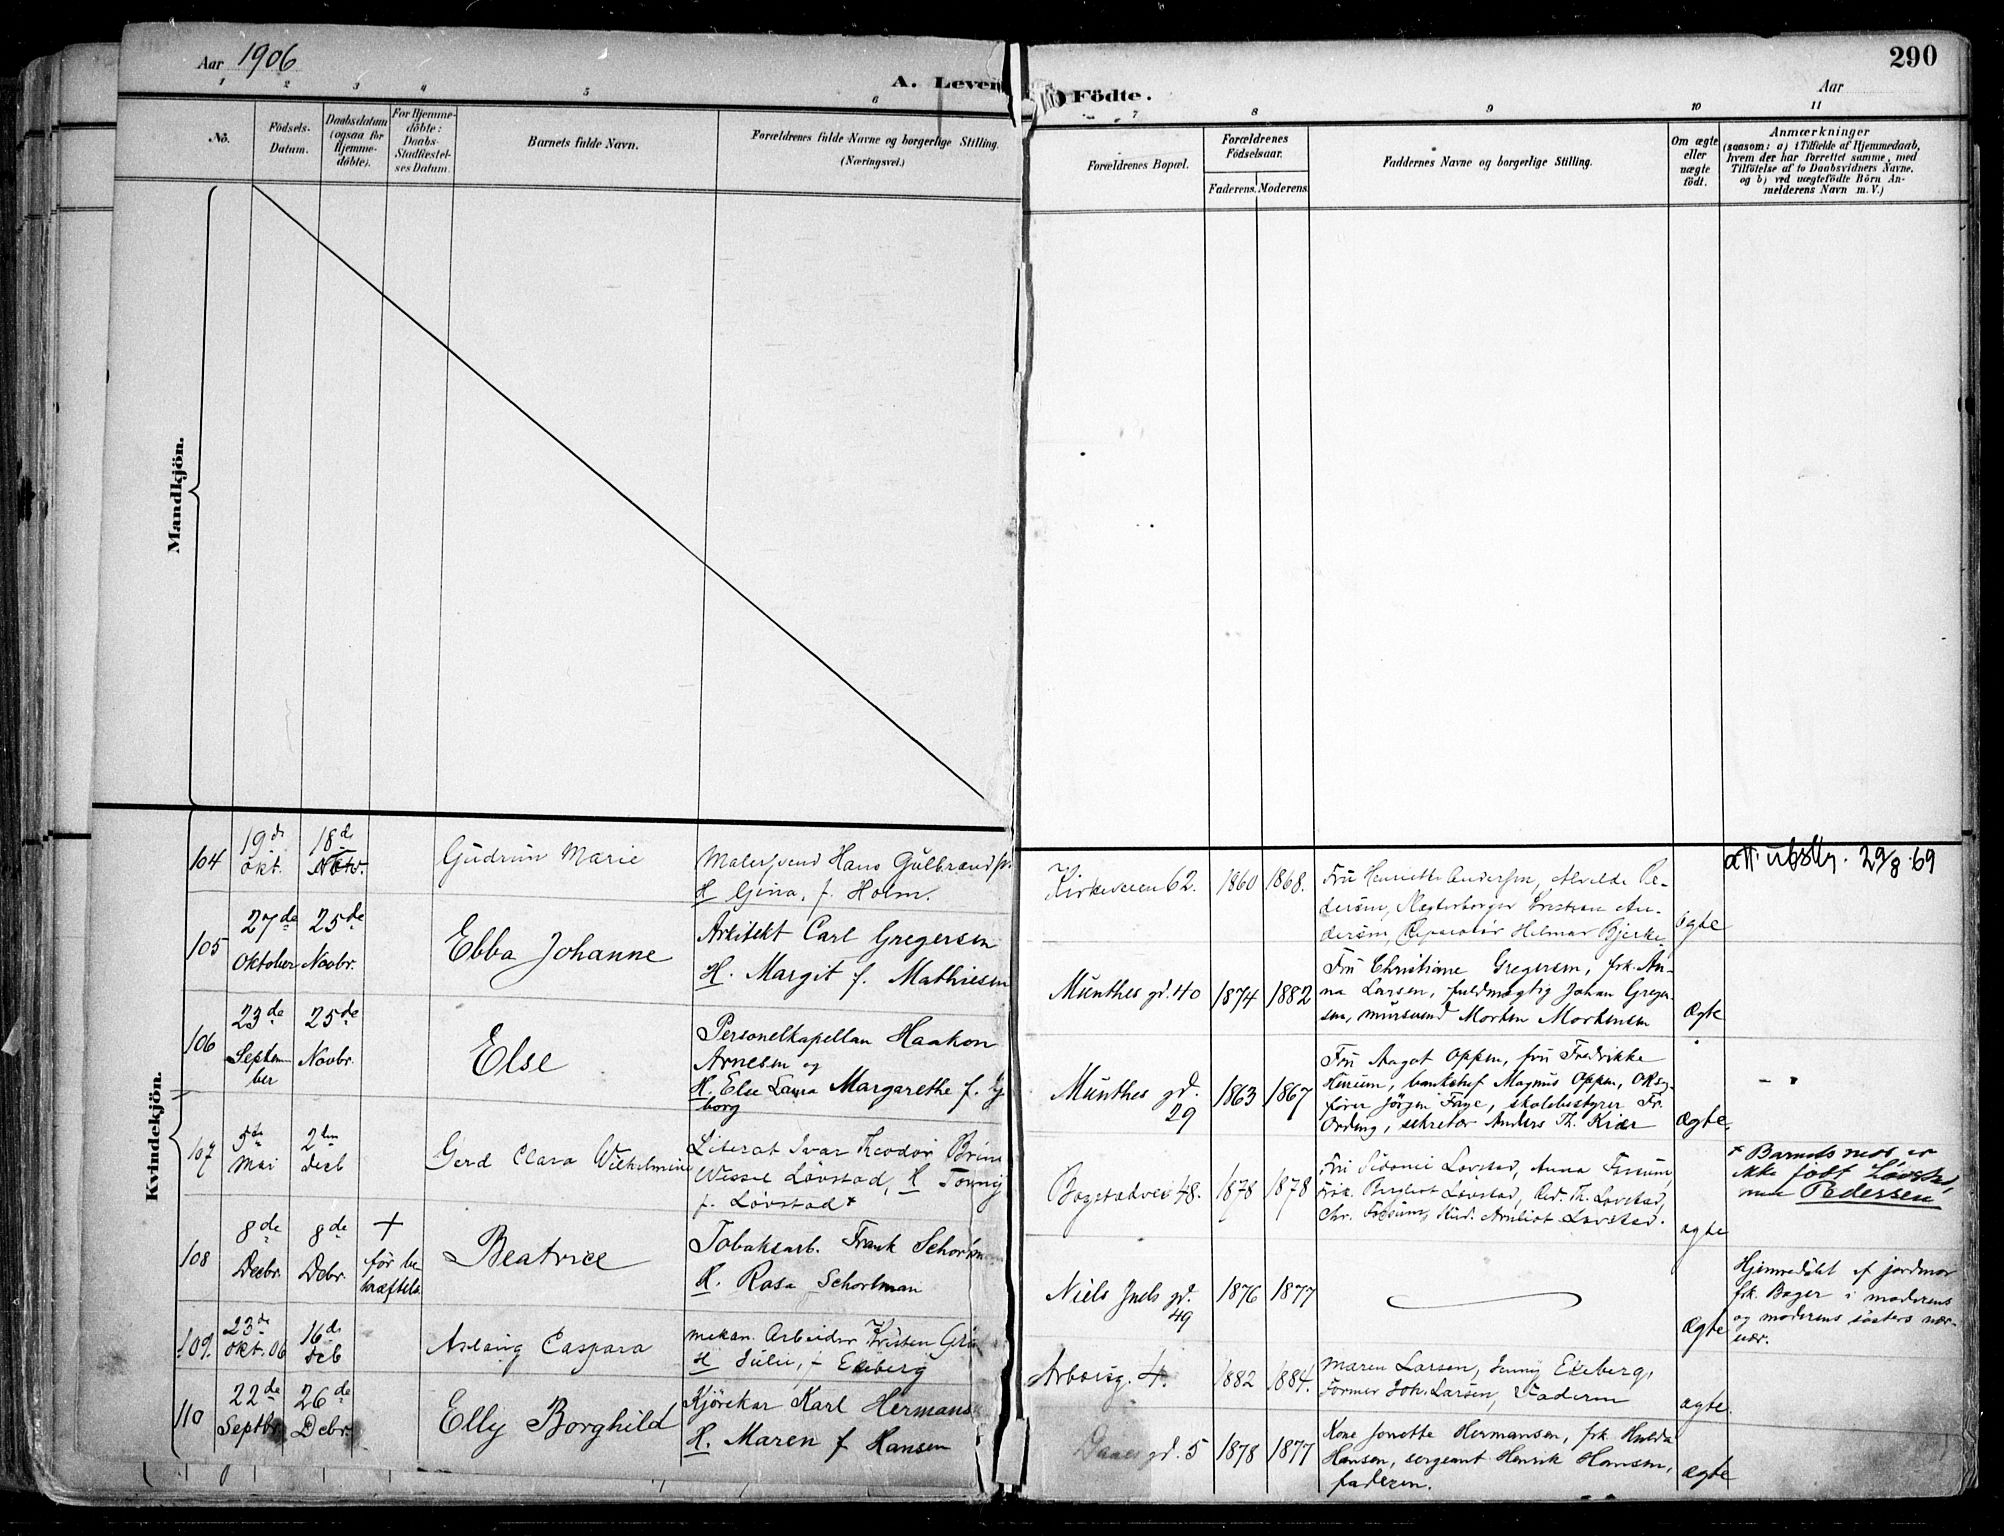 Aar 1906
A. Leven
Födte.
290
Aar
1 2 3 4 5 6 7 8 9 10 11
No.
Födsels-
Datum.
Daabsdatum
(ogsaa for
Hjemme-
döbte).
For Hjemme-
döbte:
Daabs-
Stadfæstel-
ses Datum.
Barnets fulde Navn.
Forældrenes fulde Navne og borgerlige Stilling.
(Næringsvei.)
Forældrenes Bopæl.
Forældrenes
Födselsaar.
Faderens. Moderens.
Faddernes Navne og borgerlige Stilling.
Om ægte
eller
uægte
födt.
Anmærkninger
(saasom: a) i Tilfælde af Hjemmedaab,
hvem der har forrettet samme, med
Tilföielse af to Daabsvidners Navne.
og b) ved uægtefödte Börn An-
melderens Navn m. V.)
Mandkjön.
Kvindekjön.
104
19de
okt.
18de
Novbr.
Gudrun Marie
Malersvend Hans Gulbrands
H Gina, f. Holm.
Kirkeveien 62.
1860 1868.
Fru Henriette Andersen, Alvilde Pe-
dersen, An-
dersen, Reparatör Hilmar Bjerke
ægte
att. utst. 29/8.69
105
27de
Oktober
25de
Novbr.
Ebba Johanne
Arkitekt Carl Gregersen
H. Margit f. Mathiesen
Munthes gd. 40
1874 1882
Fru Christiane Gregersen, frk. An-
na Larsen, fuldmægtig Johan Greger-
sen, mursvend Morten Mortensen
Ægte
106
23de
Septem-
ber
25de
Novbr.
Else
Personelkapellan Haakon
Arnesen og
H. Else Laura Margarethe f.
borg
Munthes gd.
29
1863 1867
Fru Aagot Oppen, fru Fredrikke
bankchef Magnus Oppen, Oksg-
förer Jörgen Faye, skolebestyrer Fr.
Ording, sekretær Anders Th. Kiær
Ægte.
107
5te
Mai
2den
Decb
Gerd Clara Wilhelmine
Literat Ivar Theodor
Wessel Lövstad, H Tonny
f. Lövstad +
Bogstadvei 48.
1878 1878
Fru Sidonie Lövstad, Anna Fossum,
Frk. Bergliot Lövstad, Red. Th. Lövstad,
Chr. Fossum, Stud. Arnliot Lövstad.
ægte
+ Barnets mor er
ikke født Løvstad,
men Pedersen
108
8de
Decbr.
8de
Dcbr.
+
för be-
kræftels.
Beatrice
Tobaksarb. Frank Schorlman
H. Rosa Schorlman
Niels Juels gd.
49
1876 1877
Ægte
Hjemmedöbt af jordmor
frk. Bager i moderens
og moderens sösters nær-
vær.
109.
23de
okt. 06
16de
Decb
Aslaug Caspara
mekan. Arbeider Kristen
H Julie, f Ekeberg
Arbosg. 4.
1882 1884.
Maren Larsen, Jenny Ekeberg,
Former Joh. Larsen, Faderen
ægte.
110
22de
Septbr.
26de
Decbr.
Elly Borghild
Kjörekar Karl Hermans
H. Maren f Hansen
Daaes gd. 5
1878 1877
Kone Jonette Hermansen, frk. Hulda
Hansen, sergeant Henrik Hansen,
faderen.
Ægte